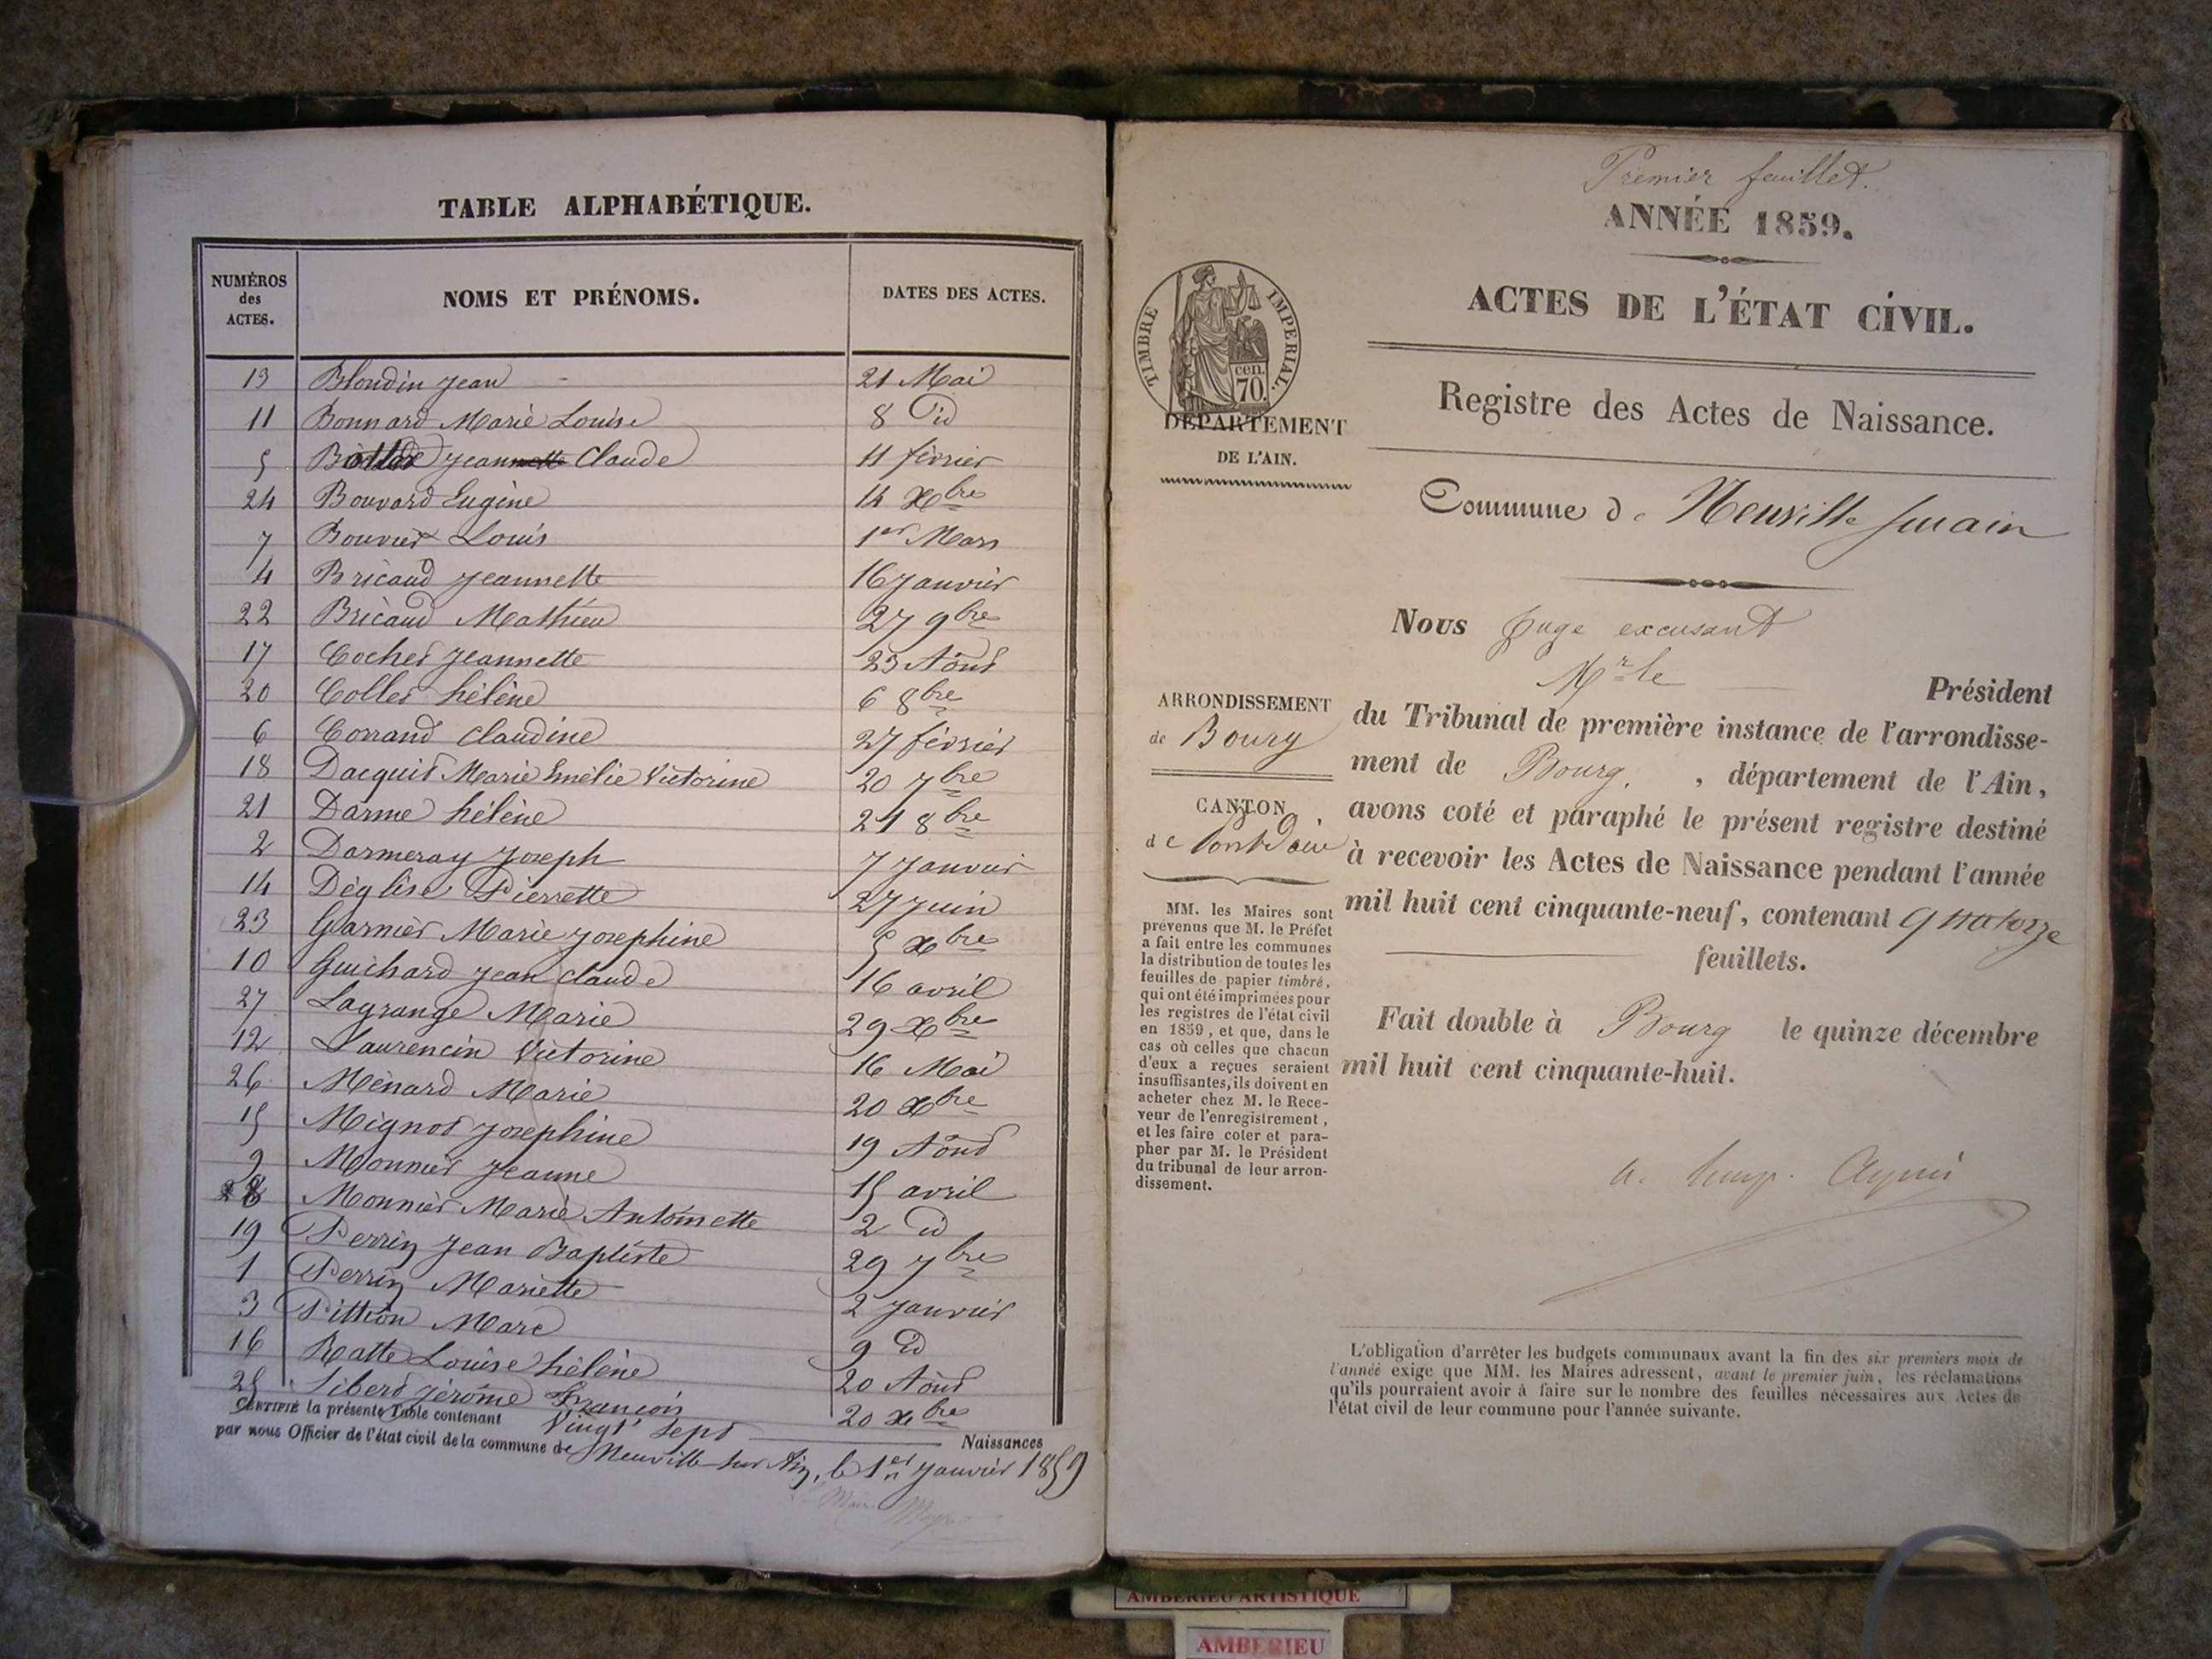 TABLE ALPHABÉTIQUE.
NUMÉROS des ACTES. NOMS ET PRÉNOMS. DATES DES ACTES.
13 Blondin Jean 21 Mai
11 Bonnard Marie Louise 8 id
5 Claude 11 février
24 Bouvard Eugène 14 Xbre
7 Bouvier Louis 1er Mars
4 Bricaud Jeannette 16 Janvier
22 Bricaud Mathieu 27 9bre
17 Cochet Jeannette 23 Août
20 Collet hélène 6 8bre
6 Corrand Claudine 27 février
18 Dacquit Marie Emélie Victorine 20 7bre
21 Darme hélène 21 8bre
2 Darmeray Joseph 7 Janvier
14 Déglise Pierrette 27 Juin
23 Garnier Marie Josephine 5 Xbre
10 Guichard Jean Claude 16 avril
27 Lagrange Marie 29 Xbre
12 Laurencin Victorine 16 Mai
26 Ménard Marie 20 Xbre
15 Mignot Josephine 19 Août
9 Monnier Jeanne 15 avril
8 Monnier Marie Antoinette 2 id
19 Perrin Jean Baptiste 29 7bre
1 Perrin Mariette 2 Janvier
3 Pittion Marc 9 id
16 Ratte Louise hélène 20 Août
25 Siberd Jérôme François 20 Xbre
CERTIFIÉ la présente Table contenant Vingt Sept Naissances
par nous Officier de l'état civil de la commune de Neuville sur Ain, le 1er Janvier 1859
Premier feuillet.
ANNÉE 1859.
ACTES DE L'ÉTAT CIVIL.
TIMBRE IMPERIAL.
cen.
70.
DÉPARTEMENT
DE L'AIN.
Registre des Actes de Naissance.
Commune de Neuville sur ain
Nous Juge excusant
Mr le Président
ARRONDISSEMENT
de Bourg
CANTON
de Pontdain
du Tribunal de première instance de l'arrondisse-
ment de Bourg, département de l'Ain,
avons coté et paraphé le présent registre destiné
à recevoir les Actes de Naissance pendant l'année
mil huit cent cinquante-neuf, contenant quatorze
feuillets.
Fait double à Bourg le quinze décembre
mil huit cent cinquante-huit.
MM. les Maires sont
prévenus que M. le Préfet
a fait entre les communes
la distribution de toutes les
feuilles de papier timbré,
qui ont été imprimées pour
les registres de l'état civil
en 1859, et que, dans le
cas où celles que chacun
d'eux a reçues seraient
insuffisantes, ils doivent en
acheter chez M. le Rece-
veur de l'enregistrement,
et les faire coter et para-
pher par M. le Président
du tribunal de leur arron-
dissement.
L'obligation d'arrêter les budgets communaux avant la fin des six premiers mois de
l'année exige que MM. les Maires adressent, avant le premier juin, les réclamations
qu'ils pourraient avoir à faire sur le nombre des feuilles nécessaires aux Actes de
l'état civil de leur commune pour l'année suivante.
AMBERIEU ARTISTIQUE
AMBERIEU